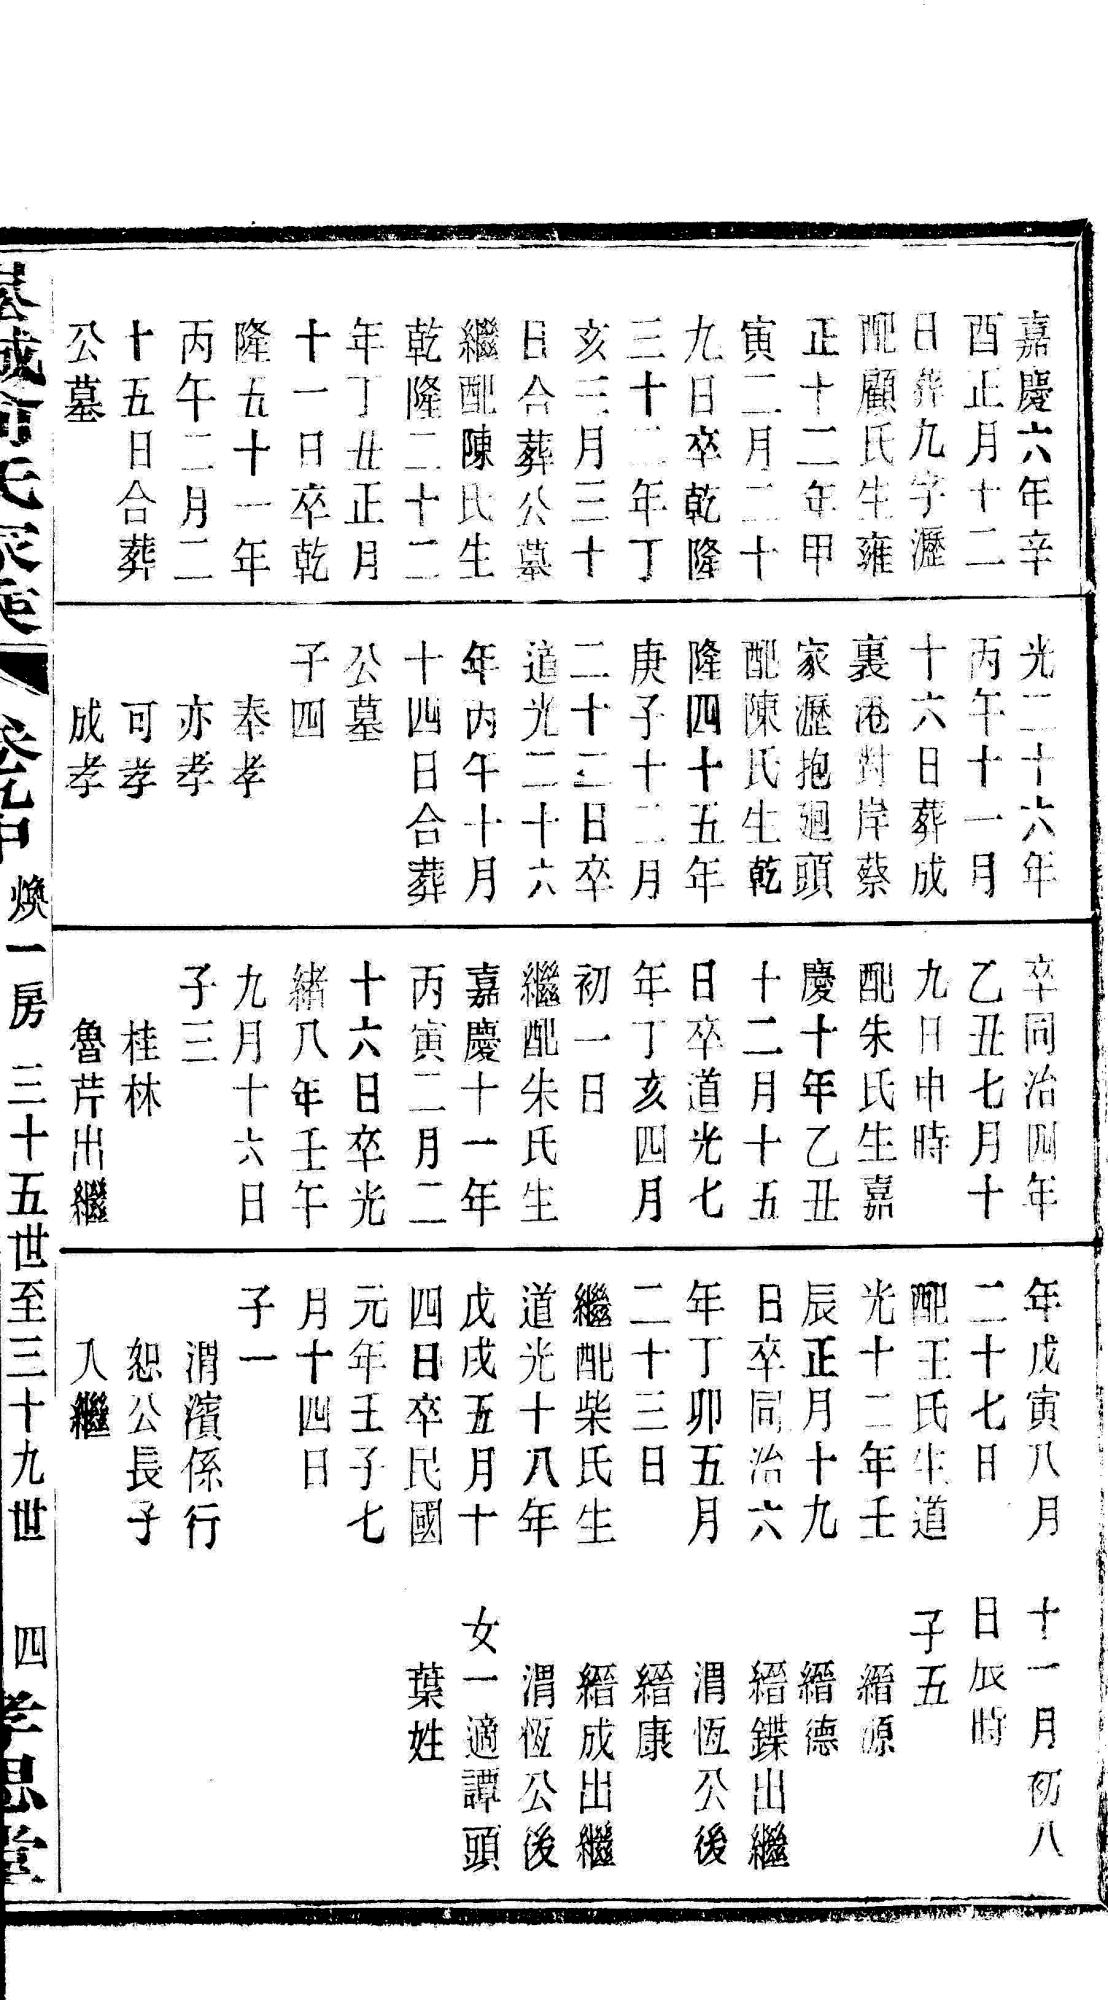 嘉慶六年辛
酉正月十二
日葬九字瀝
配顧氏生雍
正十二年甲
寅二月二十
九日卒乾隆
三十二年丁
亥三月三十
日合葬公墓
繼配陳氏生
乾隆二十二
年丁丑正月
十一日卒乾
隆五十一年
丙午二月二
十五日合葬
公墓
光二十六年
丙午十一月
十六日葬成
裏港對岸蔡
家瀝抱廻頭
配陳氏生乾
隆四十五年
庚子十二月
二十二日卒
道光二十六
年丙午十月
十四日合葬
公墓
子四
奉孝
亦孝
可孝
成孝
卒同治四年
乙丑七月十
九日申時
配朱氏生嘉
慶十年乙丑
十二月十五
日卒道光七
年丁亥四月
初一日
繼配朱氏生
嘉慶十一年
丙寅二月二
十六日卒光
緒八年壬午
九月十六日
子三
桂林
魯芹出繼
年戊寅八月
二十七日
配王氏生道
光十二年壬
辰正月十九
日卒同治六
年丁卯五月
二十三日
繼配柴氏生
道光十八年
戊戌五月十
四日卒民國
元年壬子七
月十四日
子一
渭濱係行
恕公長子
入繼
十一月初八
日辰時
子五
縉源
縉德
縉鍱出繼
渭恆公後
縉康
縉成出繼
渭恆公後
女一適譚頭
葉姓
氏家乘 卷九中 煥一房 三十五世至三十九世 四 孝思堂